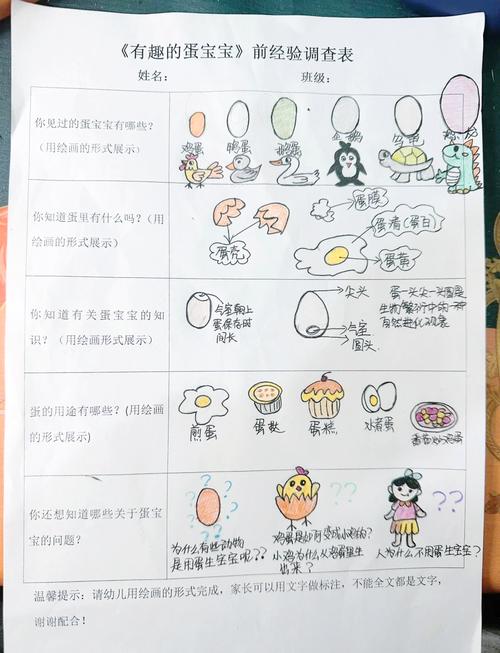 《有趣的蛋宝宝》前经验调查表
姓名：
班级：
你见过的蛋宝宝有哪些？
（用绘画的形式展示）
鸡蛋
鸭蛋
鹅蛋
企鹅
乌龟
恐龙
你知道蛋里有什么吗？（用
绘画的形式展示）
蛋壳
蛋膜
蛋清(蛋白)
蛋黄
你知道有关蛋宝宝的知
识？（用绘画形式展示）
气室朝上
蛋保存时
间长
尖头
气室
圆头
蛋一头尖一头圆是
生物繁衍中的一种
自然进化现象
蛋的用途有哪些？(用绘画
的形式展示)
煎蛋
蛋挞
蛋糕
水煮蛋
你还想知道哪些关于蛋宝
宝的问题？
? ? ? ? ?
为什么有些动物
是用蛋生宝宝呢??
??
鸡蛋是如何变成小鸡的?
小鸡为什么从鸡蛋里生
出来?
??
人为什么不用蛋生宝宝??
温馨提示：请幼儿用绘画的形式完成，家长可以用文字做标注，不能全文都是文字，
谢谢配合！